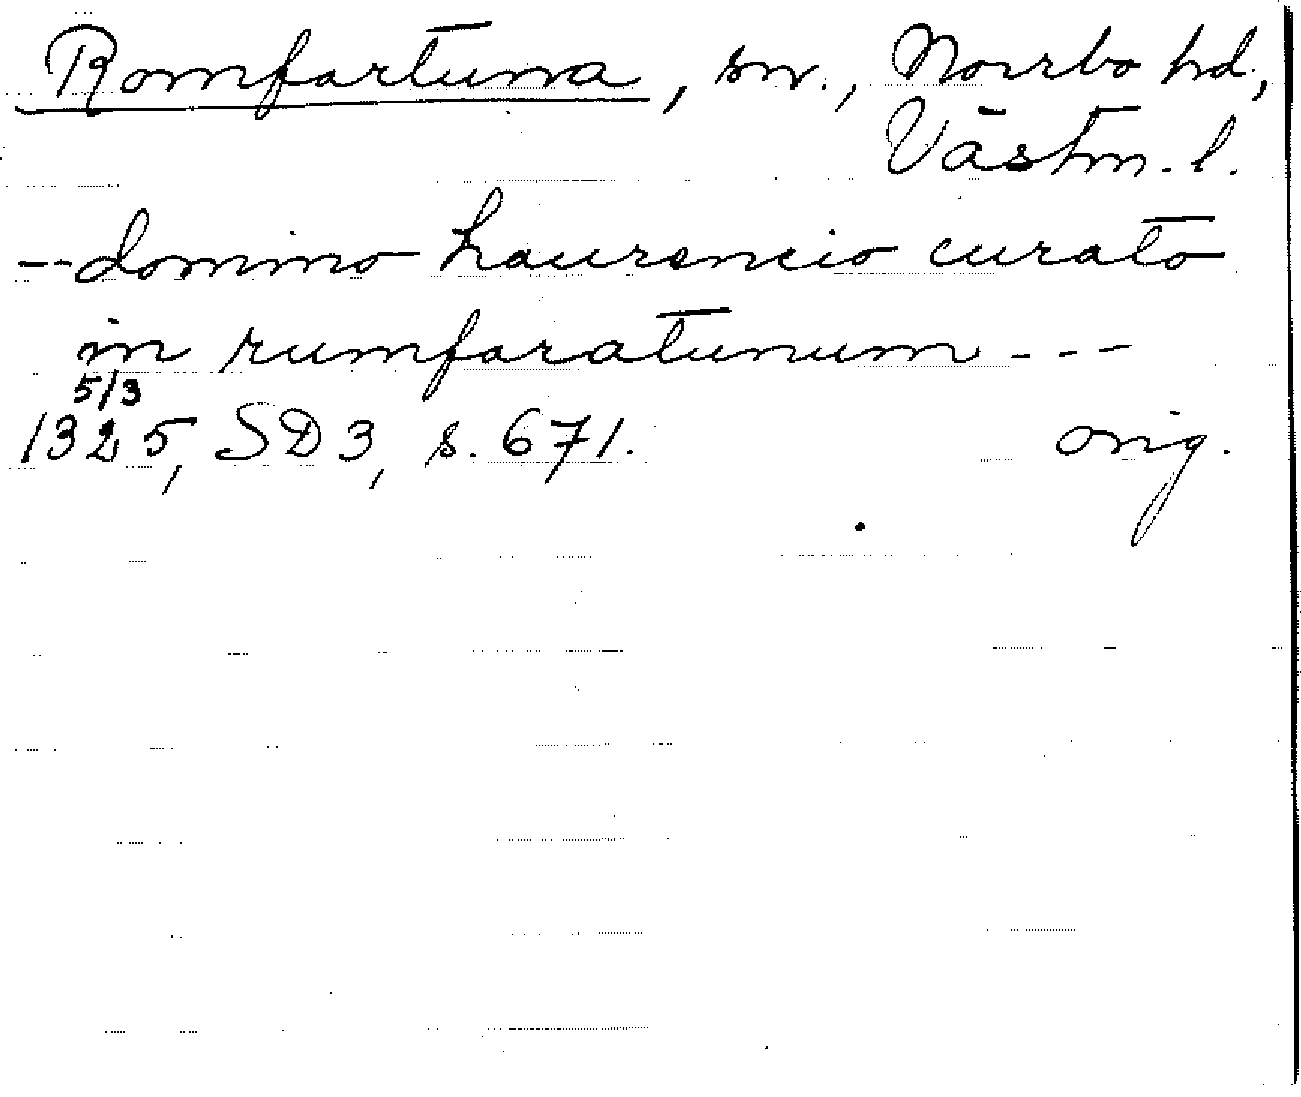 Romfartuna, sn., Norrbo hd,
Västm. l.
--domino Laurencio curato
in rumfaratunum ---
5/3
1325, SD 3, s. 671. orig.